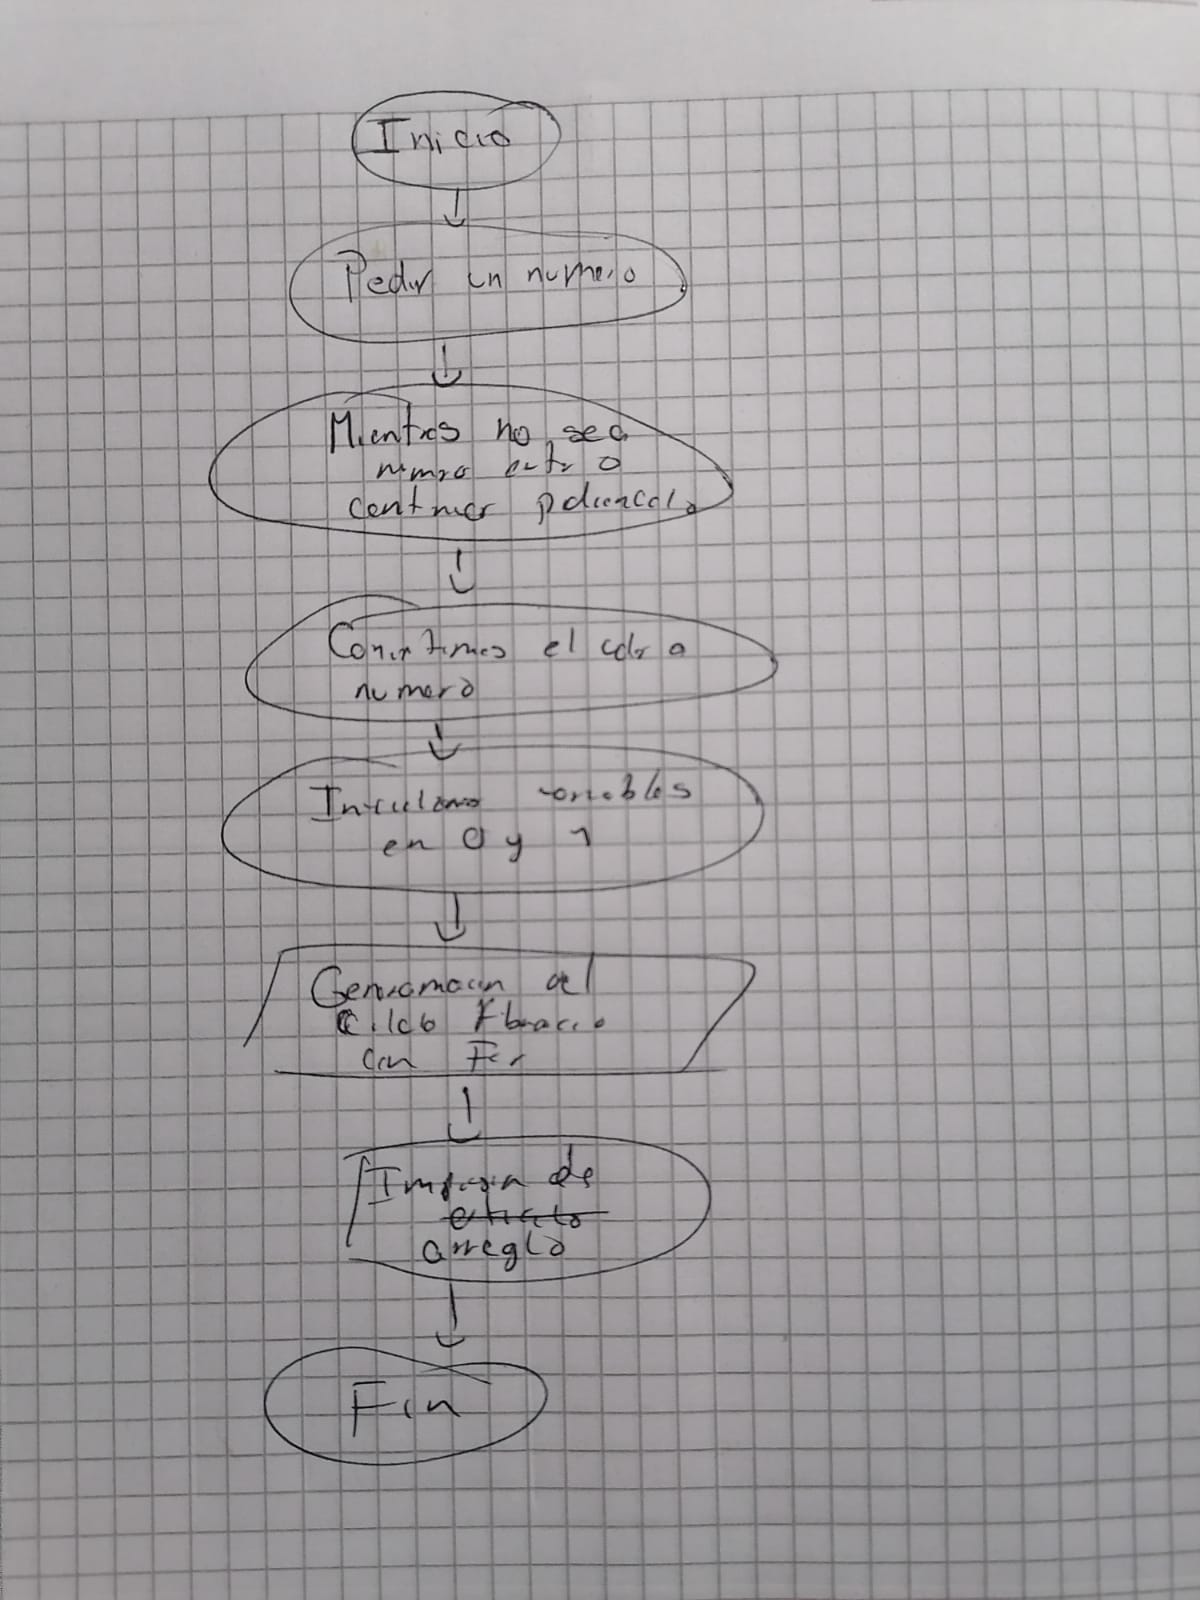 Inicio
Pedir un numero
Mientras no sea
numero entero
continuar pidiendolo
Convertimos el valor a
numero
Inicializamos variables
en 0 y 1
del
Ciclo Fibonacci
con For
Impresion de
arreglo
Fin